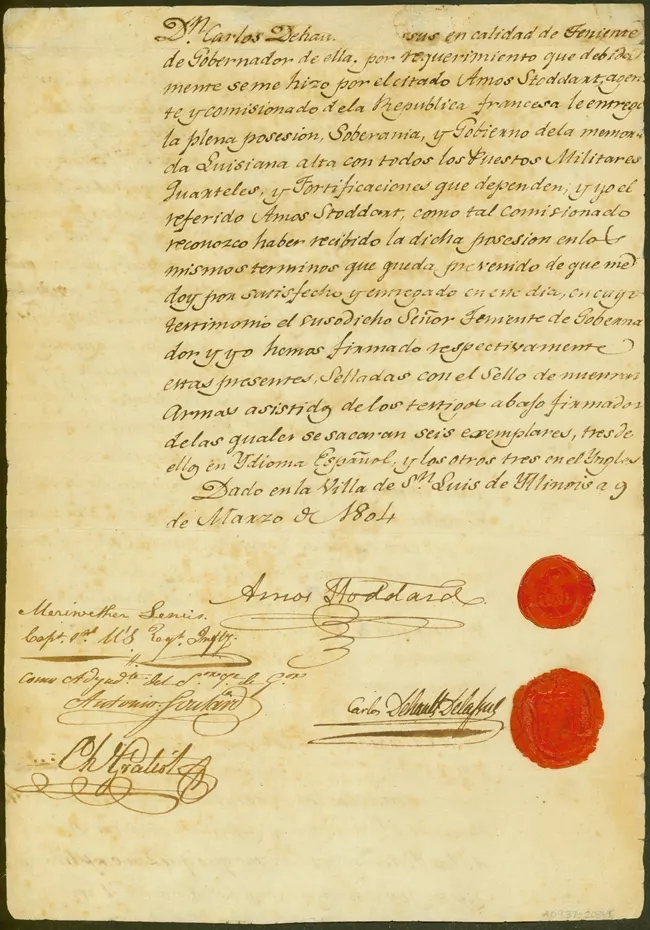 Dn Carlos Dehau sus en calidad de Teniente
de Gobernador de ella, por requerimiento que debida
mente se me hizo por el citado Amos Stoddart, agen
te y comisionado de la Republica francesa le entrego
la plena posesion, Soberania, y Gobierno de la memora
da Luisiana alta con todos los Puestos Militares
Quarteles, y Fortificaciones que dependen, y yo el
referido Amos Stoddart, como tal comisionado
reconozco haber recibido la dicha posesion en los
mismos terminos que queda prevenido de que me
doy por satisfecho y entregado en este dia, en cuyo
testimonio el susodicho Señor Teniente de Goberna
dor y yo hemos firmado respectivamente
estas presentes, Selladas con el Sello de nuestras
Armas asistidos de los testigos abajo firmados
de las quales se sacaran seis exemplares, tres de
ellos en Ydioma Español, y los otros tres en el Ynglés
Dado en la Villa de Sn Luis de Yllinois a 9
de Marzo de 1804
Amos Stoddard
Meriwether Lewis.
Capt. 1st. U'S Regt. Infty.
como Ayudte del Sor
Antonio Soulard
Carlos Dehault Delassus
Chs Gratiot